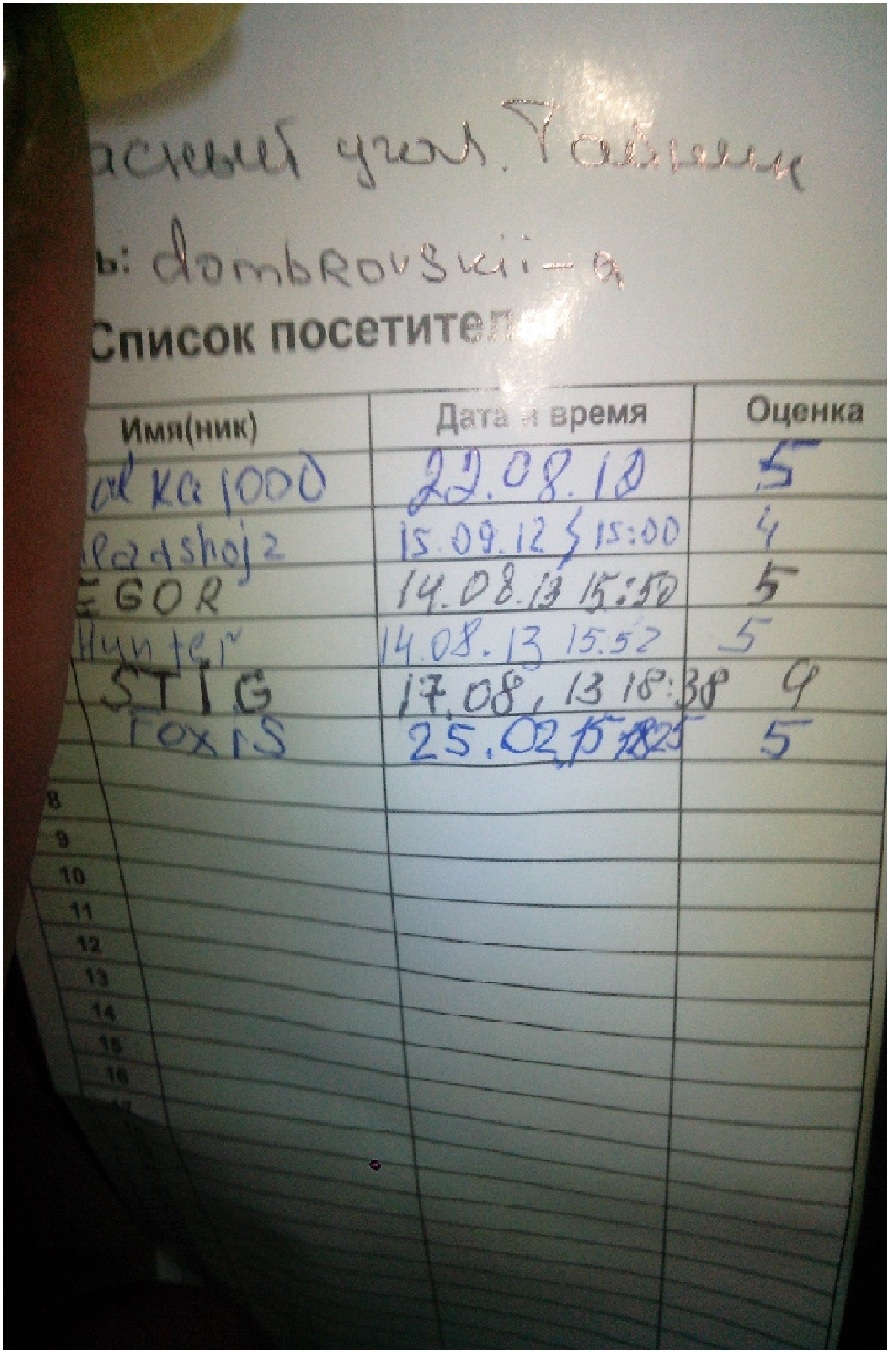 асный угол. Тайник
ь: dombrovskii-a
Список посетител
Имя(ник) Дата и время Оценка
alka1000 22.08.12 5
15.09.12 15:00 4
EGOR 14.08.13 15:50 5
Hunter 14.08.13 15.52 5
STIG 17.08.13 18:38 4
Toxis 25.02.15 5
8
9
10
11
12
13
14
15
16
17